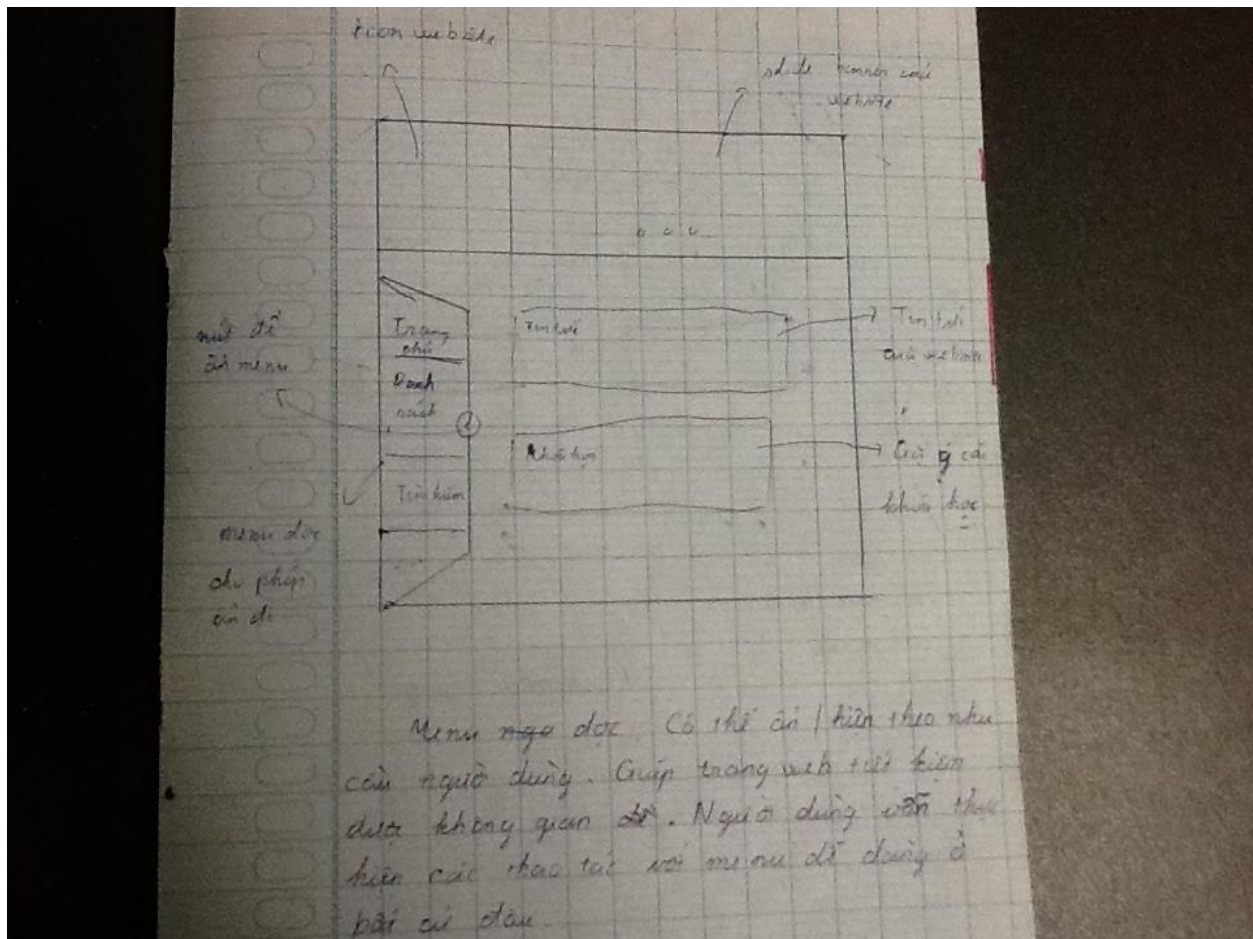 icon website
slide banner của
website
nút để
ẩn menu
Trang
chủ
Danh
sách
Tìm kiếm
Tin tức
Tin tức
của website
Khóa học
Gợi ý các
khóa học
menu dọc
cho phép
ẩn đi
Menu dọc. Có thể ẩn / hiện theo nhu
cầu người dùng. Giúp trang web tiết kiệm
được không gian. Người dùng vẫn thực
hiện các thao tác với menu dễ dàng ở
bất cứ đâu